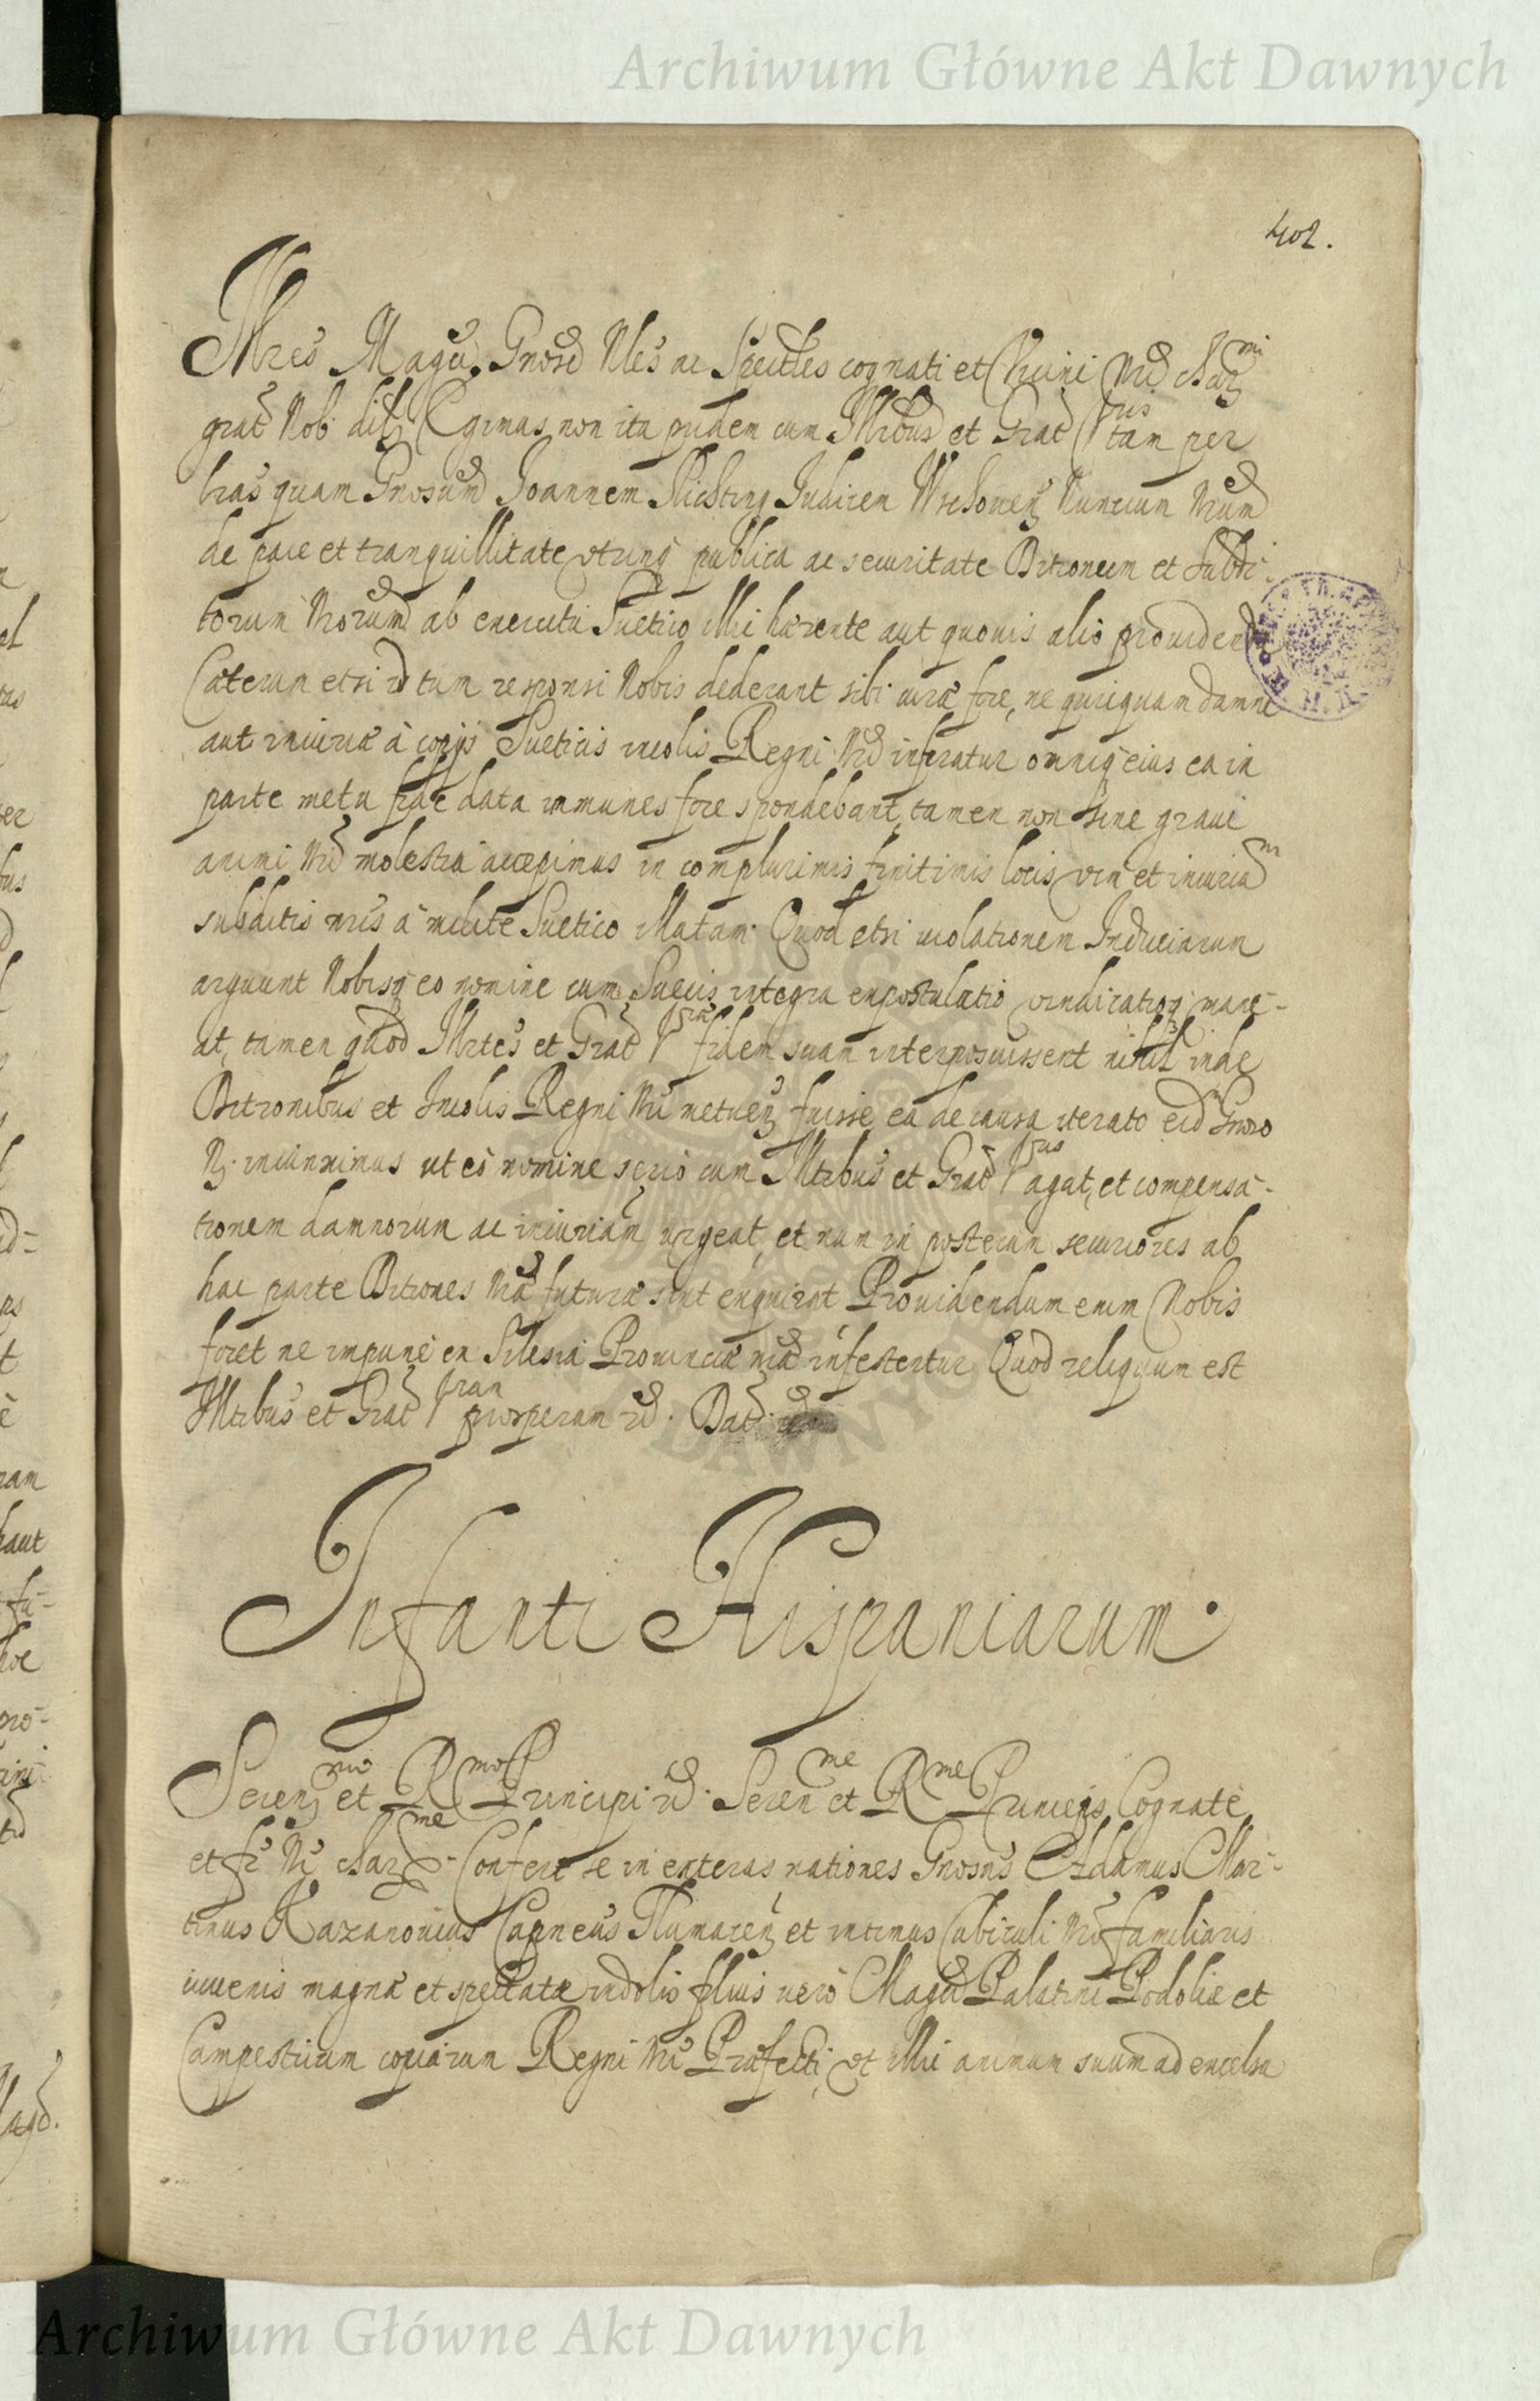 Archiwum Główne Akt Dawnych
402.
Illres Magci, Gnosi Nles ac Spectles cognati et Vicini Nri char mi
grat Nob. dilti Egimus non ita pridem cum Illribus et Grat Vris tam per
lras quam Gnosum Joannem Slichting Judicem Wschouen Nuncium Nrum
de pace et tranquillitate utrinq publica ac securitate Ditionum et Subdi-
torum Nrorum ab exercitu Suetico illic hærente aut quouis alio prouidenda
Cæterum etsi id tum responsi Nobis dederant sibi curæ fore, ne quicquam damni
aut iniuriæ à copijs Sueticis incolis Regni Nri inferatur omniq eius ea in
parte metu fide data immunes fore spondebant, tamen non sine graui
animi Nri molestia accepimus in complurimis finitimis locis vim et iniuriam
subditis nris à milite Suetico illatam. Quod etsi violationem Induciarum
arguunt Nobisq eo nomine cum Suecis integra expostulatio vindicatioq mane-
at, tamen quod Illrtes et Grat Vræ fidem suam interposuissent nihil inde
Ditionibus et Incolis Regni Nri metuen fuisse, ea de causa iterato eid Gnoso
N. iniunximus ut eo nomine serio cum Illribus et Grat Vris agat, et compensa-
tionem damnorum ac iniuriam urgeat, et num in posterum securiores ab
hac parte Ditiones Nræ futuræ sint exquirat Prouidendum enim Nobis
foret ne impune ex Silesia Prouinciæ nræ infestentur Quod reliquum est
Illribus et Grat Vram prosperam
Infanti Hispaniarum.
Seren mo et R mo Principi Seren me et R me Princeps Cognate
et fr Nr char me Confert se in exteras nationes Gnosus Adamus Mar-
tinus Kazanouius Capneus Tlumacen et intimus Cubiculi Nri familiaris
iuuenis magnæ et spectatæ indolis filius vero Magci Palatini Podoliæ et
Campestrium copiarum Regni Nri Præfecti, et illic animum suum ad excelsa
Archiwum Główne Akt Dawnych